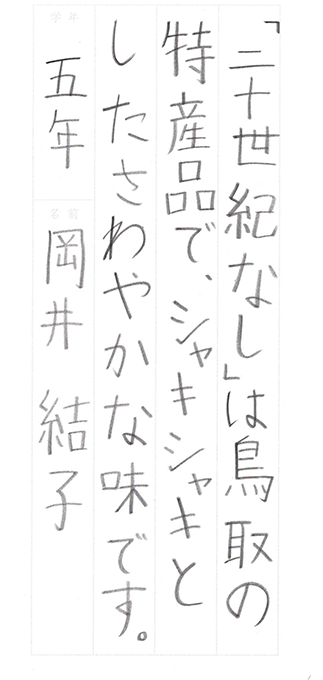 「二十世紀なし」は鳥取の
特産品で、シャキシャキと
したさわやかな味です。
学年
五年
名前
岡井 結子